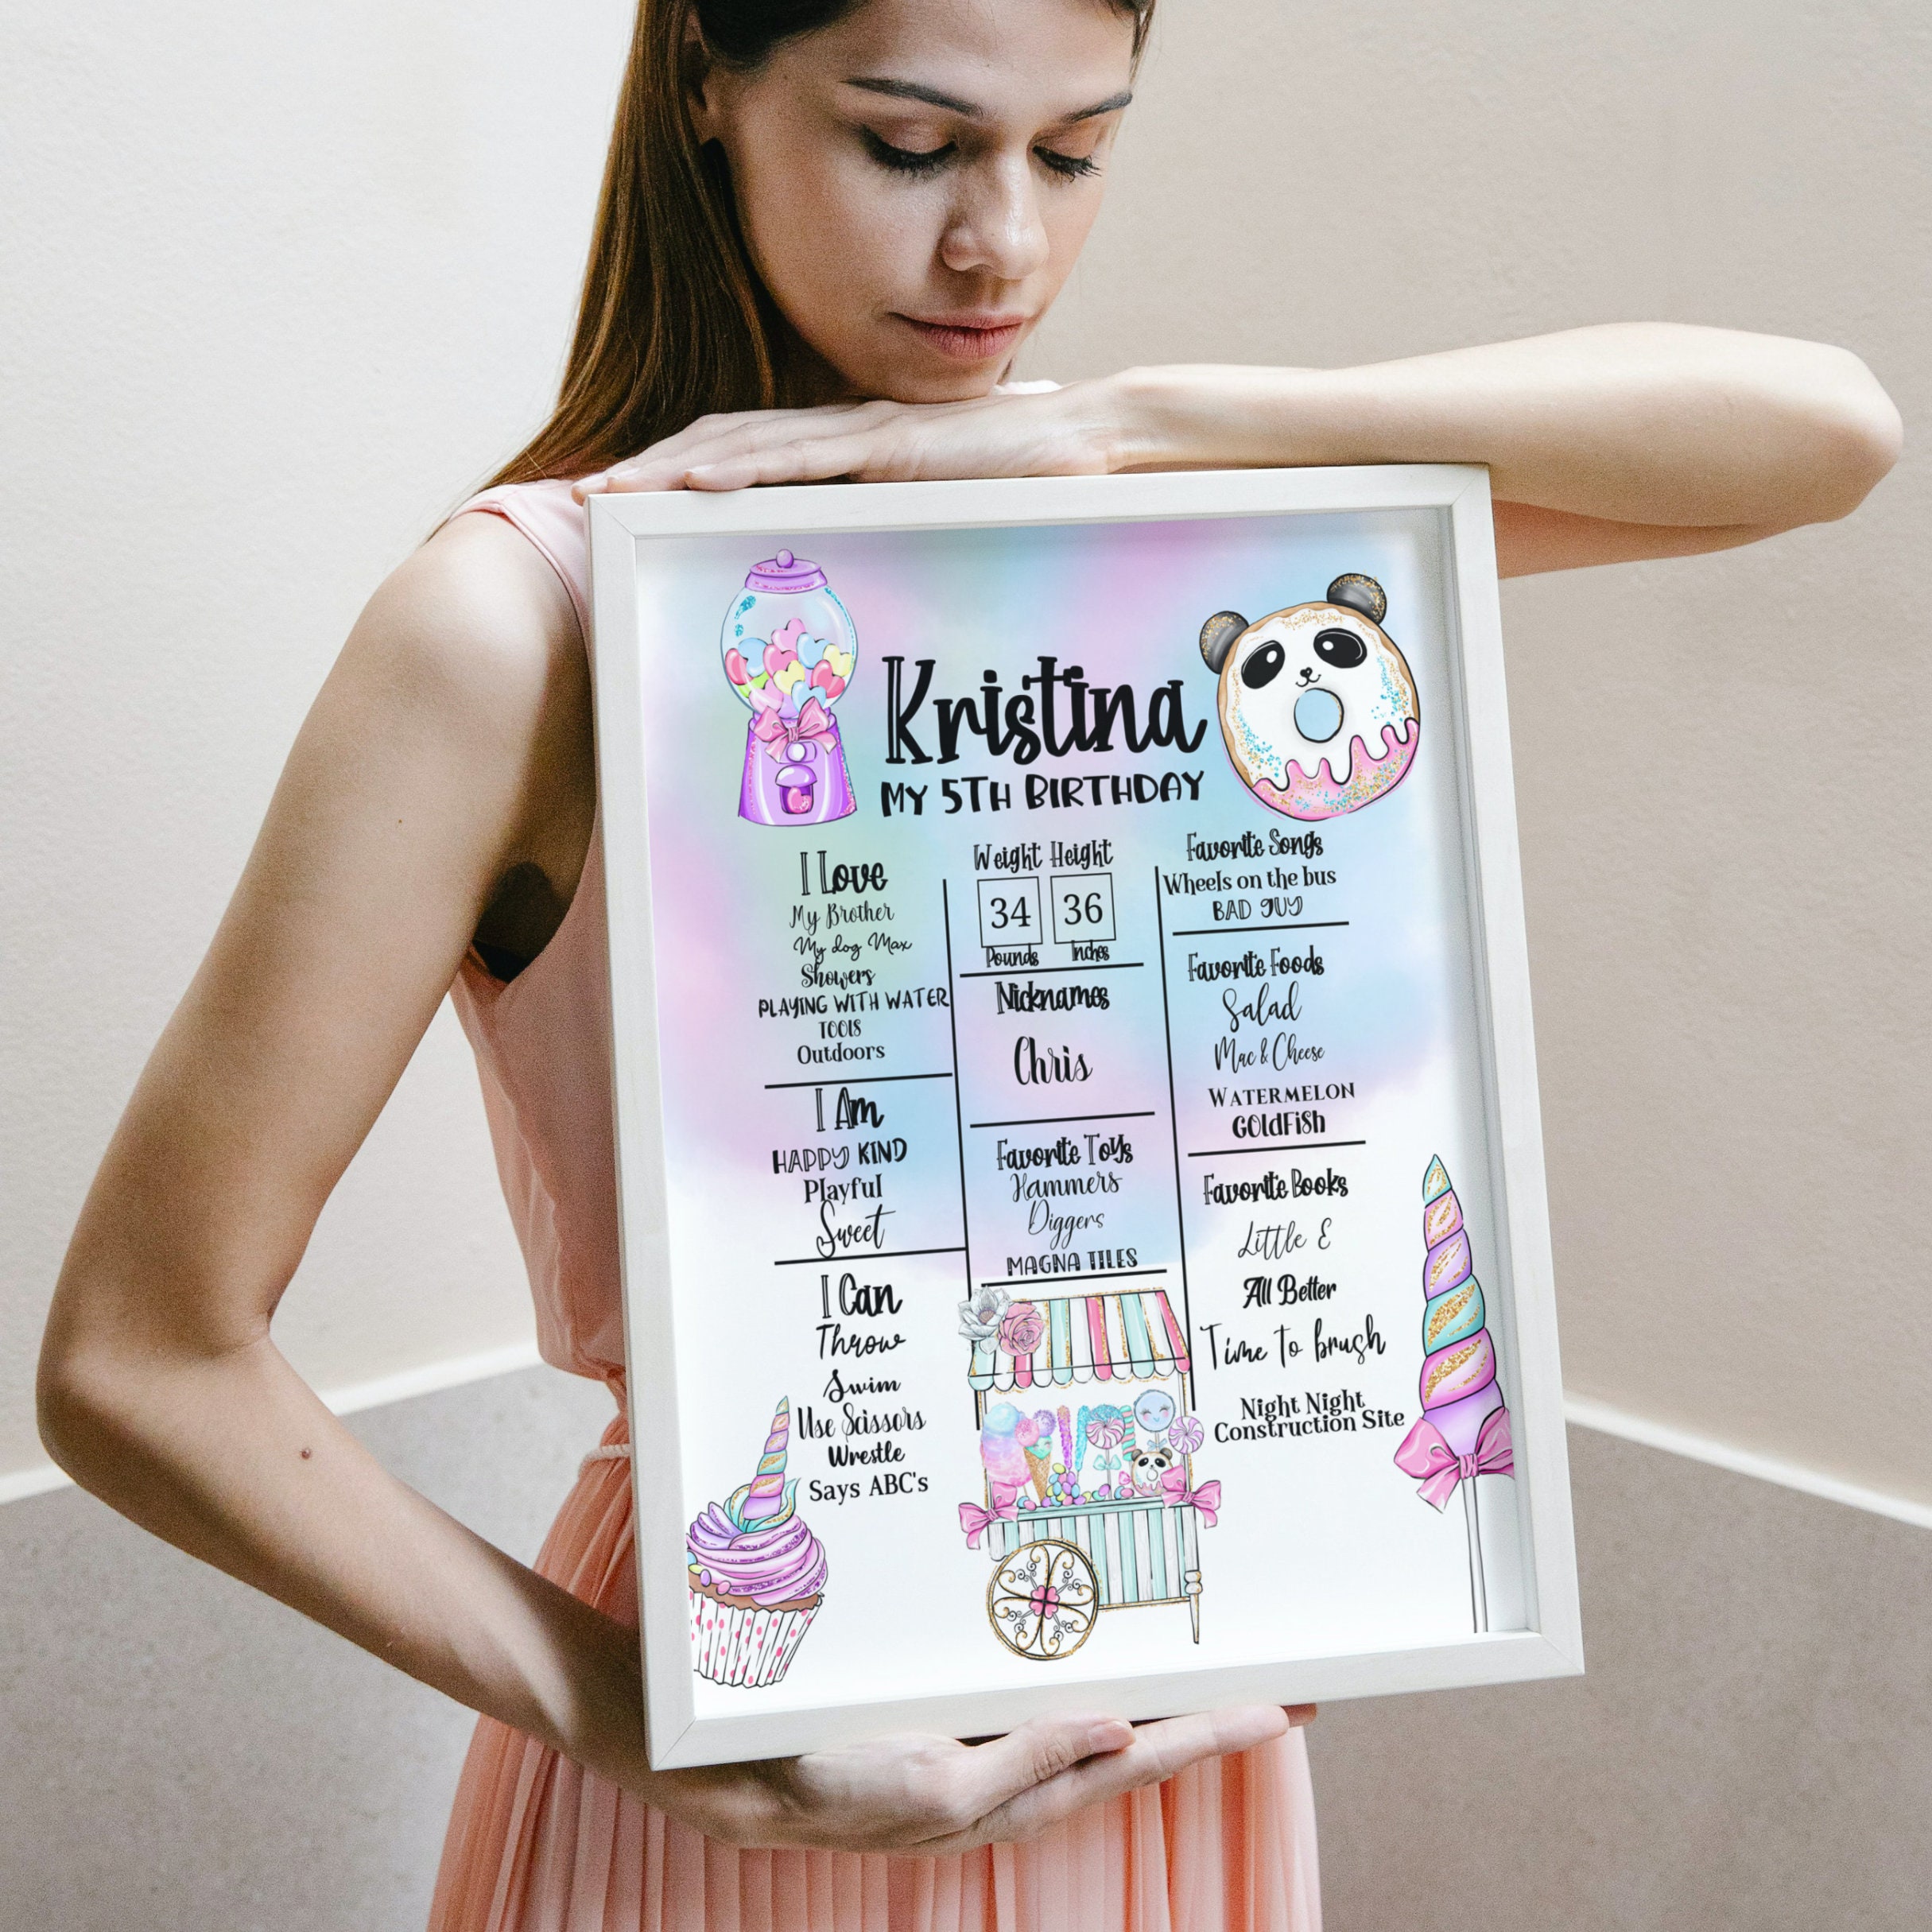 Kristina
MY 5TH BIRTHDAY
I Love
My Brother
My dog Max
Showers
PLAYING WITH WATER
TOOlS
Outdoors
I Am
HAPPY KIND
Playful
Sweet
I Can
Throw
Swim
Use Scissors
Wrestle
Says ABC's
Weight Height
34 36
Pounds Inches
Nicknames
Chris
Favorite Toys
Hammers
Diggers
MAGNA TILES
Favorite Songs
Wheels on the bus
BAD GUY
Favorite Foods
Salad
Mac & Cheese
WATERMELON
GOldFiSh
Favorite Books
Little E
All Better
Time to brush
Night Night
Construction Site